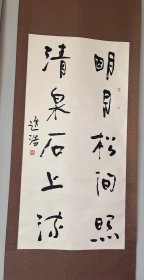 明月松间照
清泉石上流
逸浩